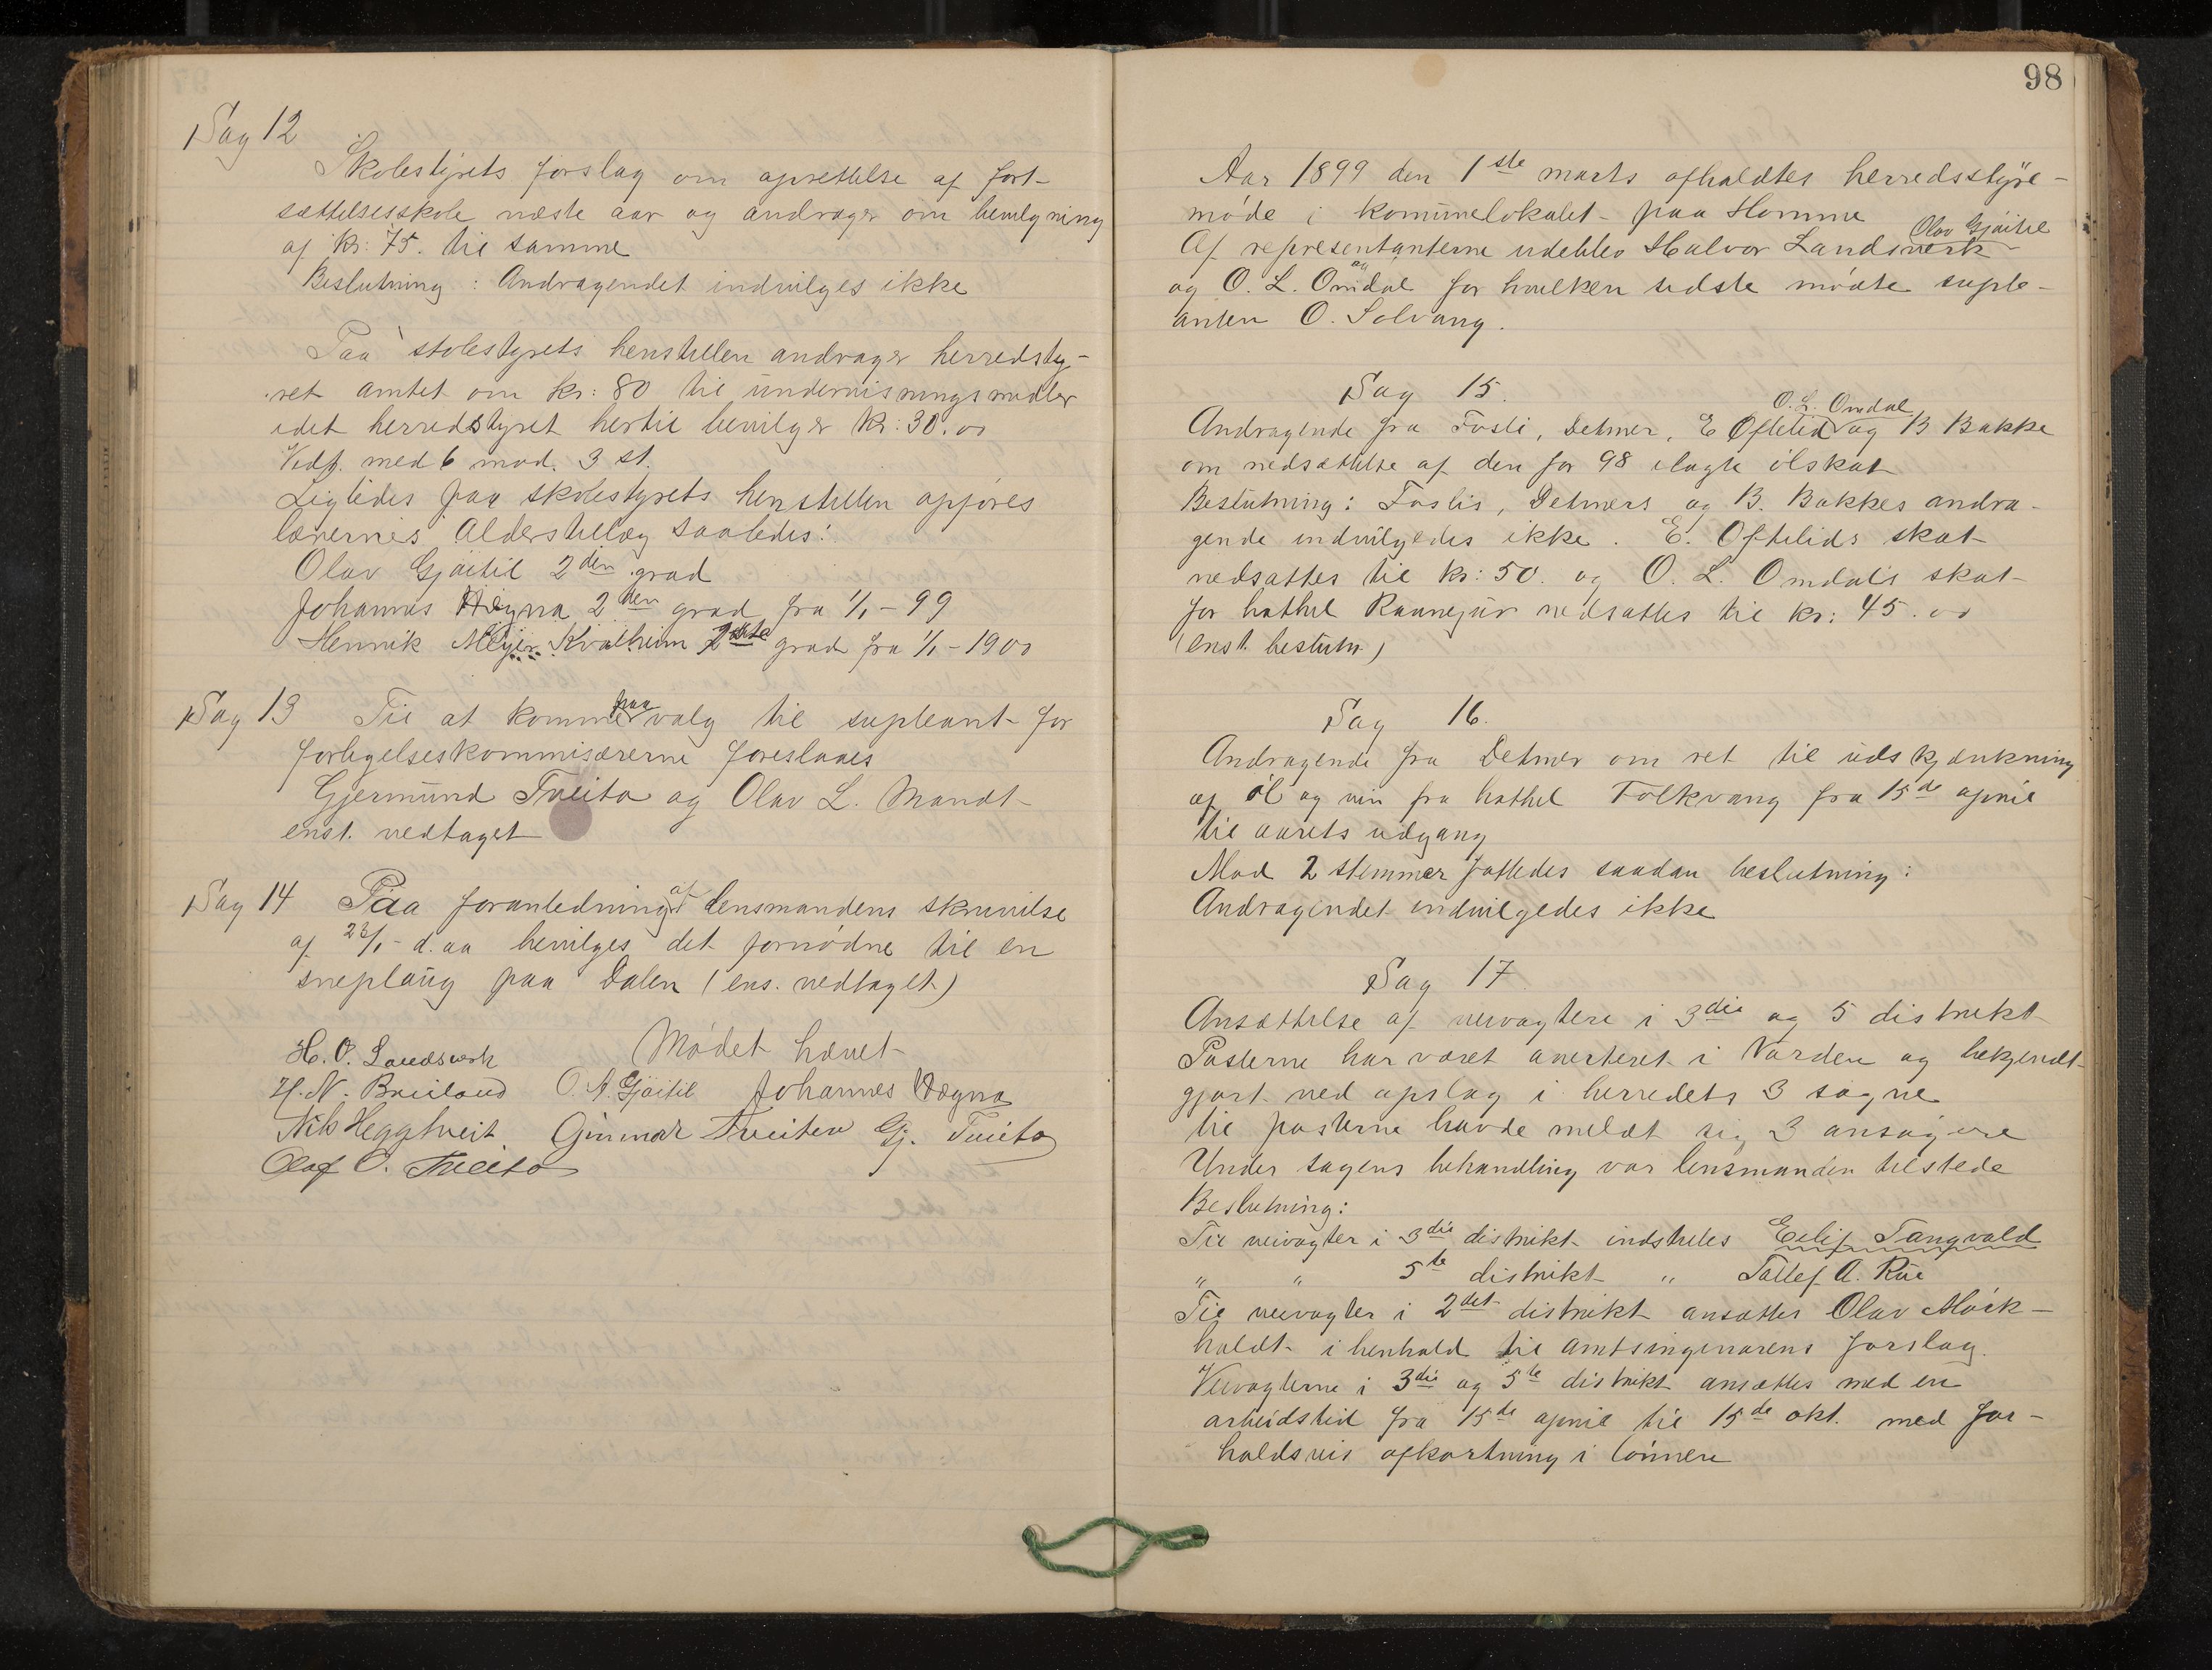 Sag 12
Skolestyrets forslag om oprettelse af fort-
sættelsesskole næste aar og andrager om bevilgning
af kr: 75. til samme
Beslutning : Andragendet indvilges ikke
Paa skolestyrets henstillen andrager herredsty-
ret amtet om kr: 80 til undervisningsmidler
idet herredstyret hertil bevilger kr: 30.00
Vedt. med 6 mod. 3 st.
Ligeledes paa skolestyrets henstillen opføres
lærernes Alderstillæg saaledes:
Olav Gjøitil 2den grad
Johannes Høgna 2den grad fra 1/1-99
Henrik Meyer Kvalheim grad fra 1/1-1900
Sag 13 Til at komme paa valg til supleant for
forligelseskommisærerne foreslaaes
Gjermund Tveito og Olav L. Mandt
enst. vedtaget
Sag 14 Paa foranledning af lensmandens skrivelse
af 28/1- d.aa bevilges det fornødne til en
sneplaug paa Dalen (ens. vedtaget)
Mødet hævet
H. O. Landsverk
H. N. Breiland O. A. Gjøitil Johannes Høgna
Nils Heggtveit Ginmar Tveiten Gj. Tveito
Olaf O. Tveito
98
Aar 1899 den 1ste marts afholdtes herredsstyre-
møde i kommunelokalet paa Homme
Af representanterne udeblev Halvor Landsverk Olav Gjøitil
og O. L. Omdal for hvilken sidste mødte suple-
anten O. Solvang.
Sag 15.
Andragende fra Fosli, Detmer, E Oftelid O. L. Omdal og B Bakke
om nedsættelse af den for 98 ilagte ølskat
Beslutning: Foslis, Detmers og B. Bakkes andra-
gende indvilgedes ikke. E. Oftelids skat
nedsattes til kr: 50. og O. L. Omdals skat
for hothel Raunejuv nedsattes til kr: 45.00
(enst. beslutn)
Sag 16.
Andragende fra Detmer om ret til udskjænkning
af øl og vin fra hothel Folkvang fra 15de april
til aarets udgang
Mod 2 stemmer fattedes saadan beslutning:
Andragendet indvilgedes ikke
Sag 17.
Ansættelse af veivogtere i 3die og 5 distrikt
Posterne har været averteret i Varden og bekjendt-
gjort ved opslag i herredets 3 sogne
til posterne havde meldt sig 3 ansøgere
Under sagens behandling var lensmanden tilstede
Beslutning:
Til veivogter i 3die distrikt indstilles Eilif Tangvald
" " 5te distrikt " Tallef A. Rue
Til veivogter i 2det distrikt ansattes Olav Mørk-
holdt i henhold til amtsingeniørens forslag.
Veivogterne i 3die og 5te distrikt ansættes med en
arbeidstid fra 15de april til 15de okt. med for-
holdsvis afkortning i lønnen